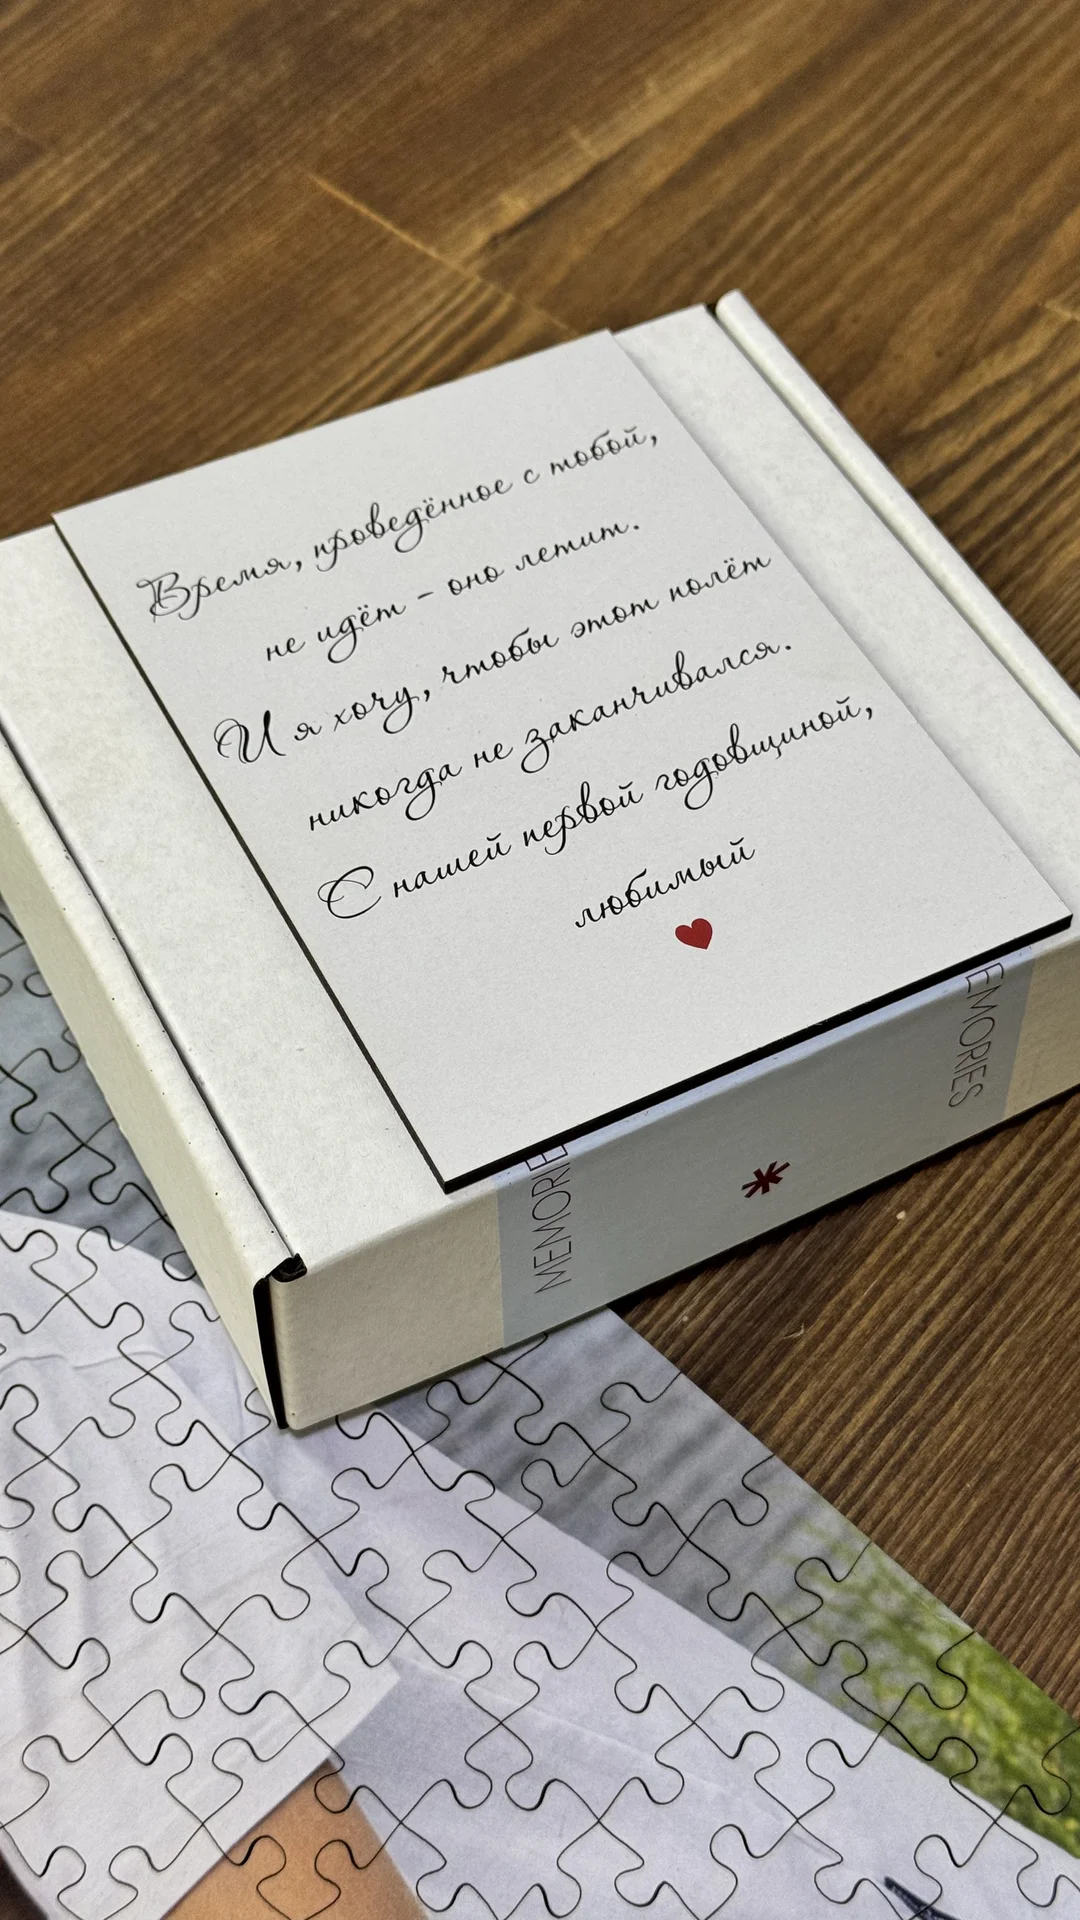 Время, проведённое с тобой,
не идёт - оно летит.
И я хочу, чтобы этот полёт
никогда не заканчивался.
С нашей первой годовщиной,
любимый
MEMORIE
EMORIES